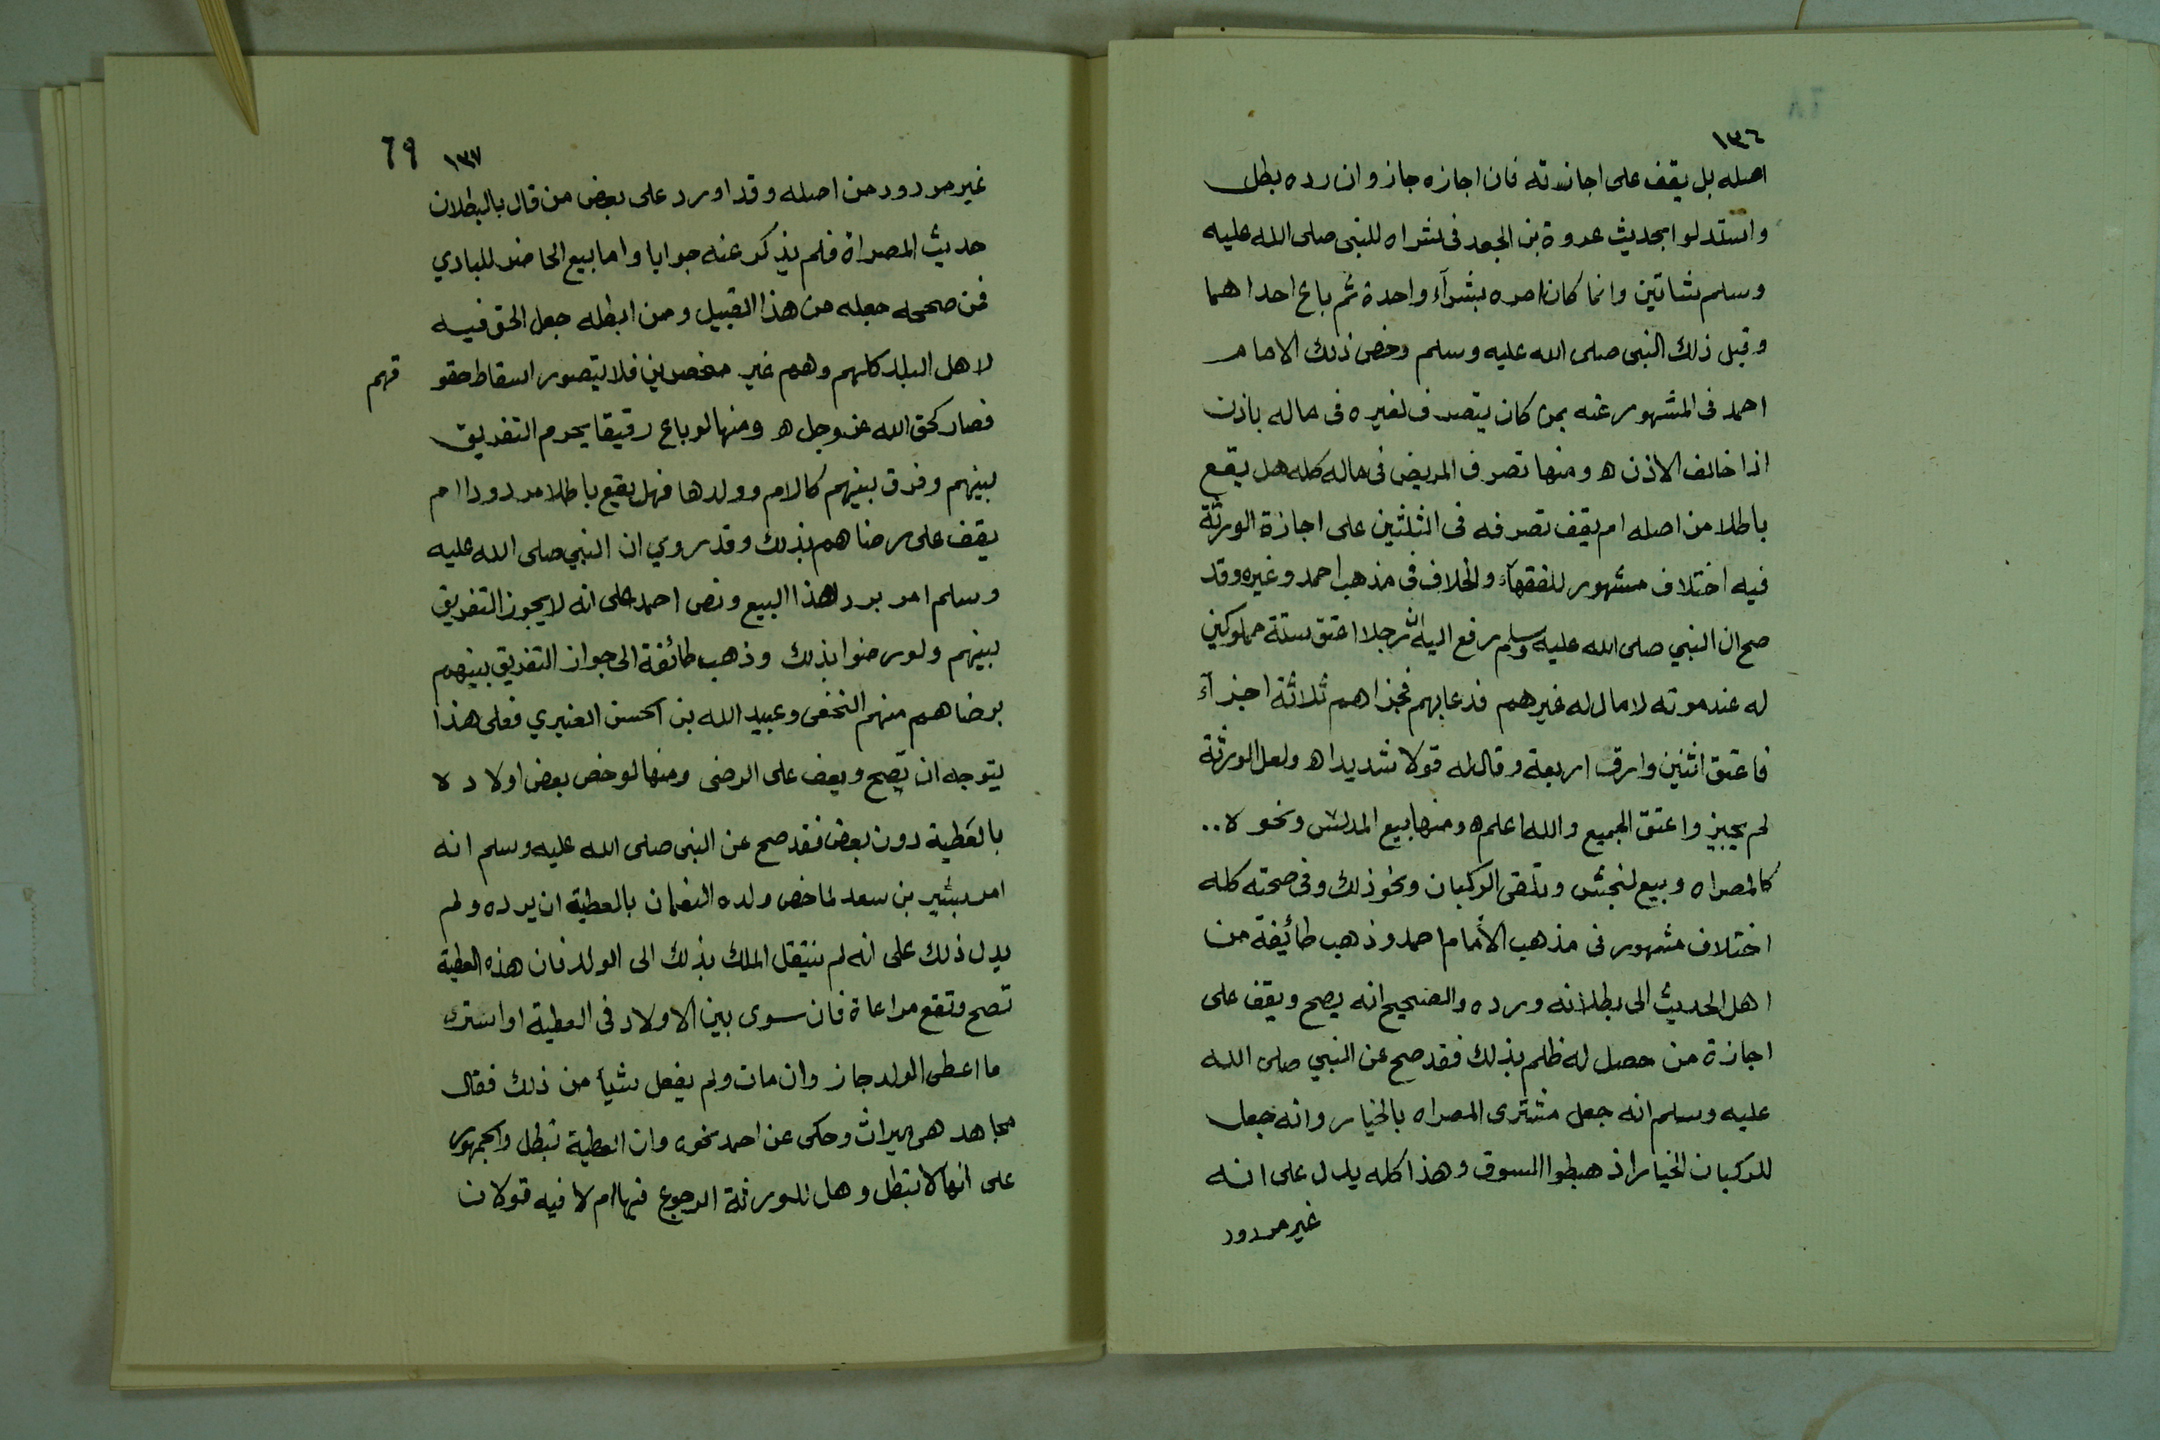 ١٣٦
اصله بل يقف على اجازته فان اجازه جاز وان رده بطل
واستدلوا بحديث عروة بن الجعد فى شراه للنبى صلى الله عليه
وسلم شاتين وانما كان امره بشرآء واحدة ثم باع احداهما
وقبل ذلك النبى صلى الله عليه وسلم وخص ذلك الامام
احمد فى المشهور عنه بمن كان يتصرف لغيره فى ماله باذن
اذا خالف الاذن ه ومنها تصرف المريض فى ماله كله هل يقع
باطلا من اصله ام يقف تصرفه فى الثلثين على اجازة الورثة
فيه اختلاف مشهور للفقهآء والخلاف فى مذهب احمد وغيره وقد
صح ان النبي صلى الله عليه وسلم رفع اليه ان رجلا اعتق ستة مملوكين
له عند موته لا مال له غيرهم فدعا بهم فجزاهم ثلاثة اجزآء
فاعتق اثنين وارق اربعة وقال له قولا شديدا ه ولعل الورثة
لم يجيز واعتق الجميع والله اعلم ه ومنها بيع المدلس ونحوه..
كالمصراه وبيع لنجش وتلقى الركبان ونحو ذلك وفى صحته كله
اختلاف مشهور فى مذهب الأمام احمد وذهب طائيفة من
اهل الحديث الى بطلانه ورده والصحيح انه يصح ويقف على
اجازة من حصل له ظلم بذلك فقد صح عن النبي صلى الله
عليه وسلم انه جعل مشترى المصراه بالخيار وانه جعل
للركبان الخيار اذ هبطوا السوق وهذا كله يدل على انه
غير مردود
١٣٧ 69
غير مردود من اصله وقد اورد على بعض من قال بالبطلان
حديث المصراة فلم يذكر عنه جوابا واما بيع الحاضر للبادي
فمن صححه جعله من هذا القبيل ومن ابطله جعل الحق فيه
لاهل البلد كلهم وهم غير منحصرين فلا يتصور اسقاط حقو قهم
فصار كحق الله عز وجل ه ومنها لو باع رقيقا يحرم التفريق
بينهم وفرق بينهم كالام وولدها فهل يقع باطلا مردودا ام
يقف على رضاهم بذلك وقد روي ان النبي صلى الله عليه
وسلم امر برد هذا البيع ونص احمد على انه لا يجوز التفريق
بينهم ولو رضوا بذلك وذهب طائفة الى جواز التفريق بينهم
برضاهم منهم النخعى وعبيد الله بن الحسن العنبري فعلى هذا
يتوجه ان يصح ويقف على الرضى ومنها لو خص بعض اولاده
بالعطية دون بعض فقد صح عن النبى صلى الله عليه وسلم انه
امر بشير بن سعد لما خص ولده النعمان بالعطية ان يرده ولم
يدل ذلك على انه لم ينتقل الملك بذلك الى الولد فان هذه العطية
تصح وتقع مراعاة فان سوى بين الاولاد فى العطية او استرد
ما اعطى الولد جاز وان مات ولم يفعل شيأ من ذلك فقال
مجاهد هى ميراث وحكى عن احمد نحوه وان العطية تبطل والجمهور
على انها لا تبطل وهل للورثة الرجوع فيها ام لا فيه قولان